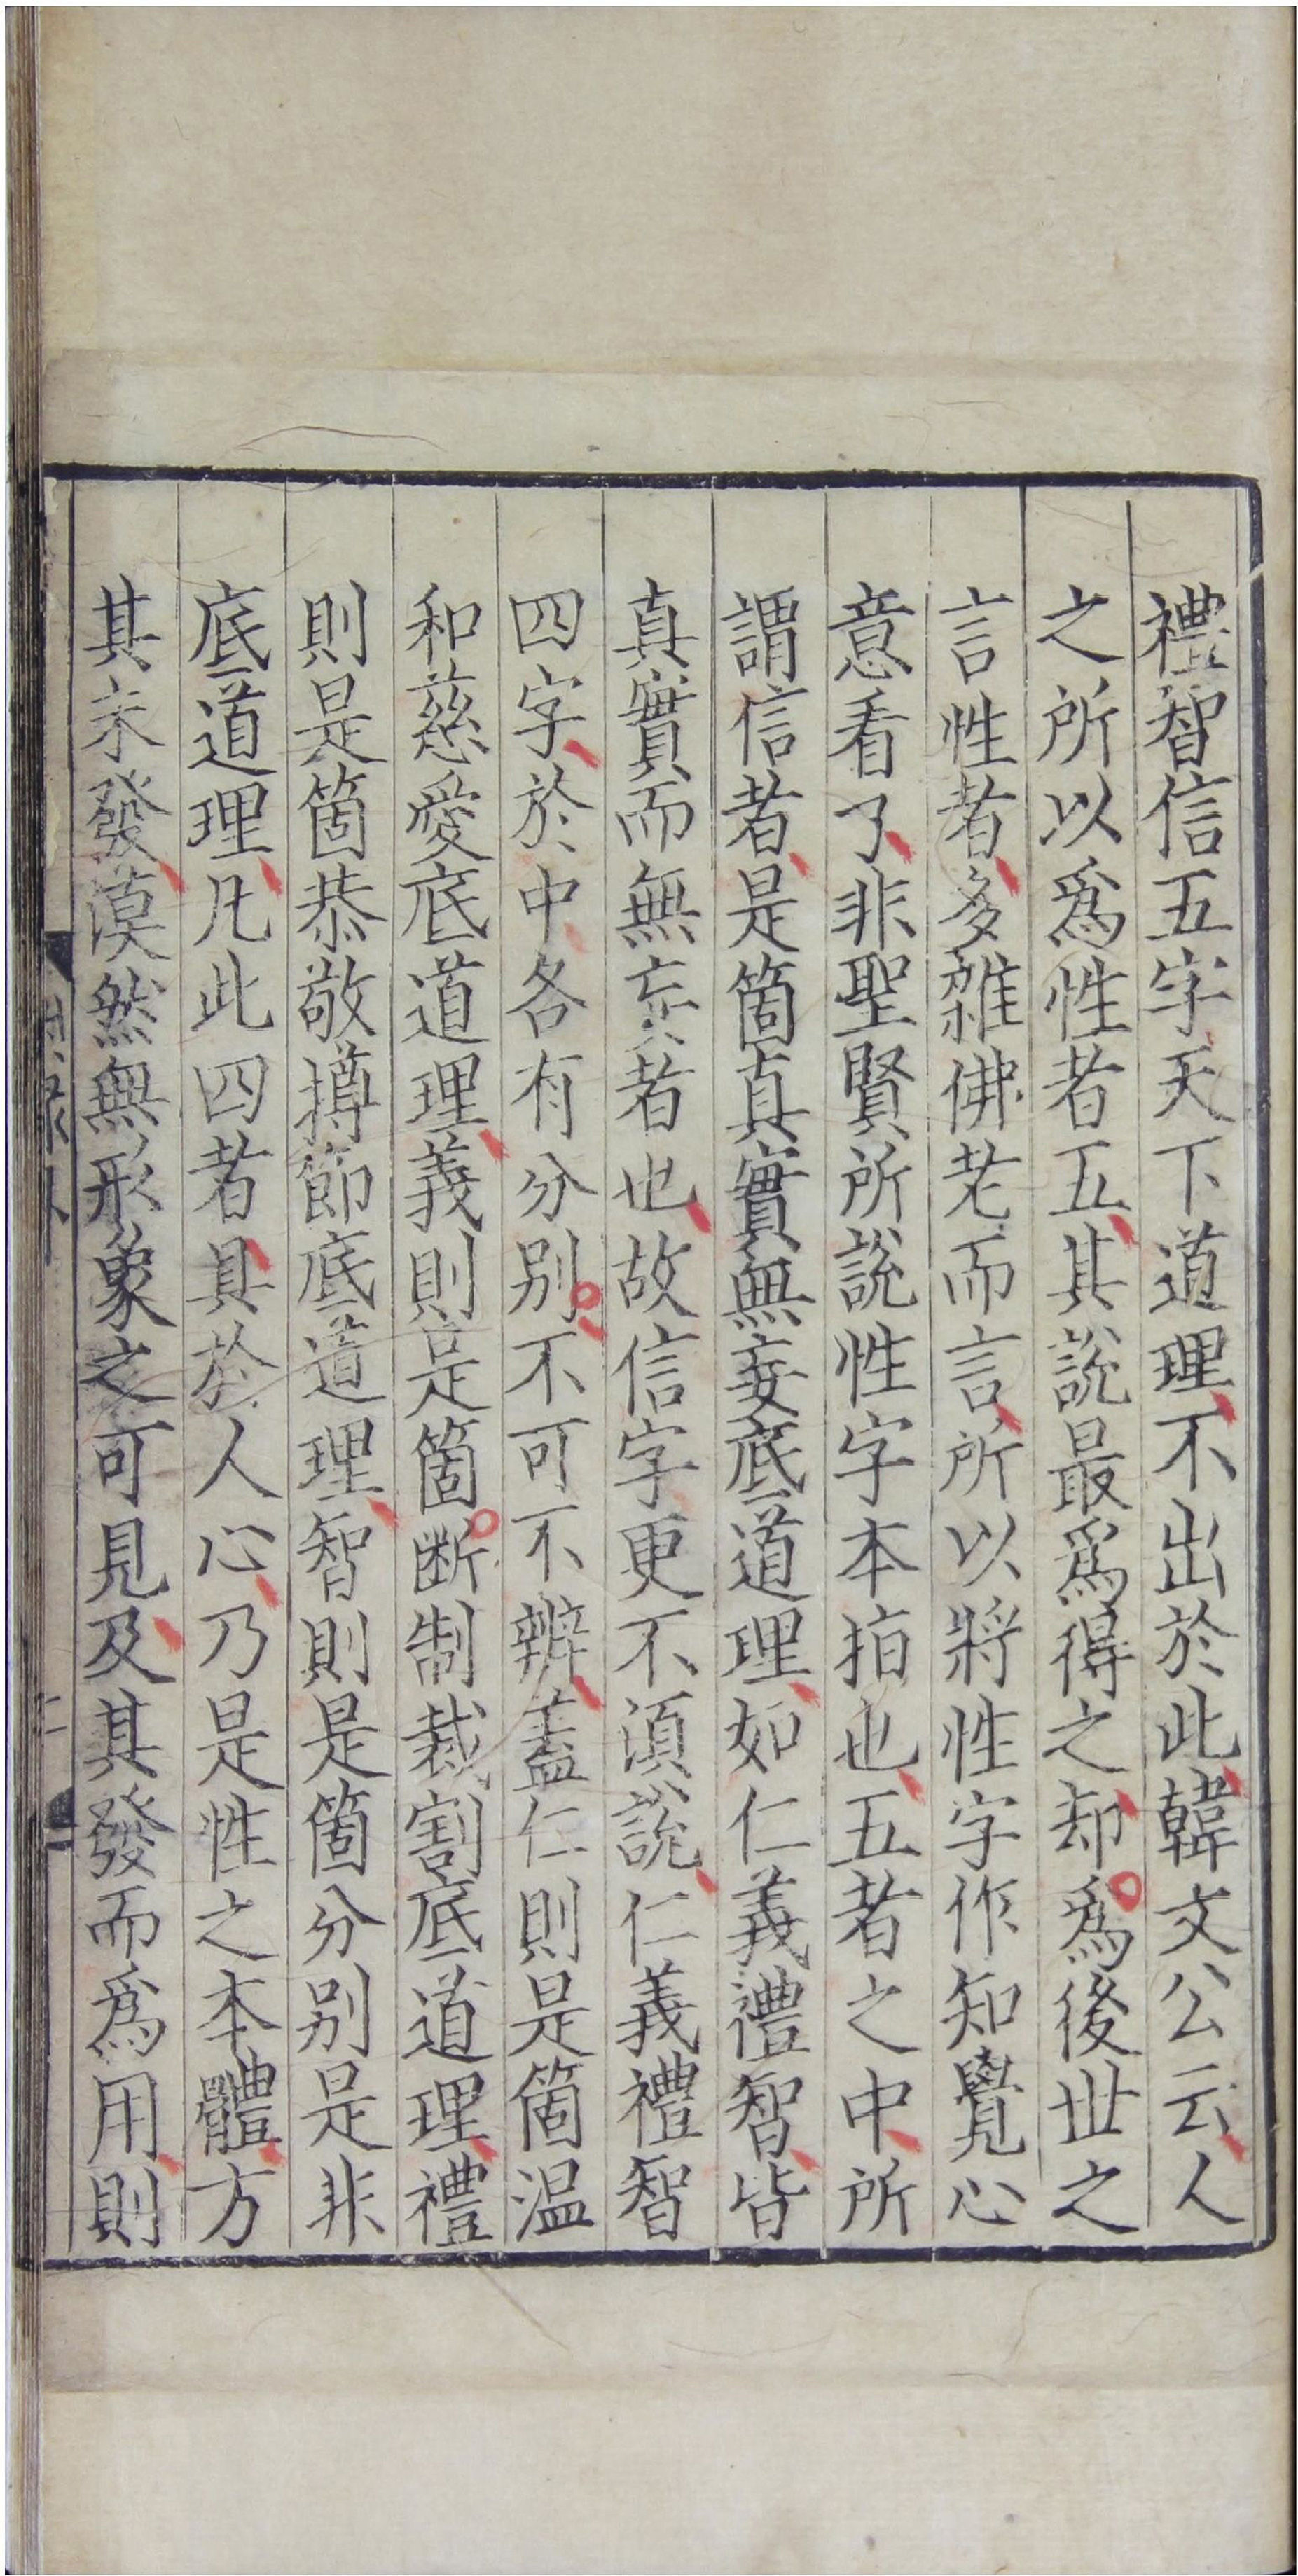 禮智信五字天下道理不出於此韓文公云人
之所以爲性者五其說最爲得之却爲後世之
言性者多雜佛老而言所以將性字作知覺心
意看了非聖賢所說性字本指也五者之中所
謂信者是箇真實無妄底道理如仁義禮智皆
真實而無妄者也故信字更不須說仁義禮智
四字於中各有分別不可不辨蓋仁則是箇溫
和慈愛底道理義則是箇斷制裁割底道理禮
則是箇恭敬撙節底道理智則是箇分別是非
底道理凡此四者具於人心乃是性之本體方
其未發漠然無形象之可見及其發而爲用則